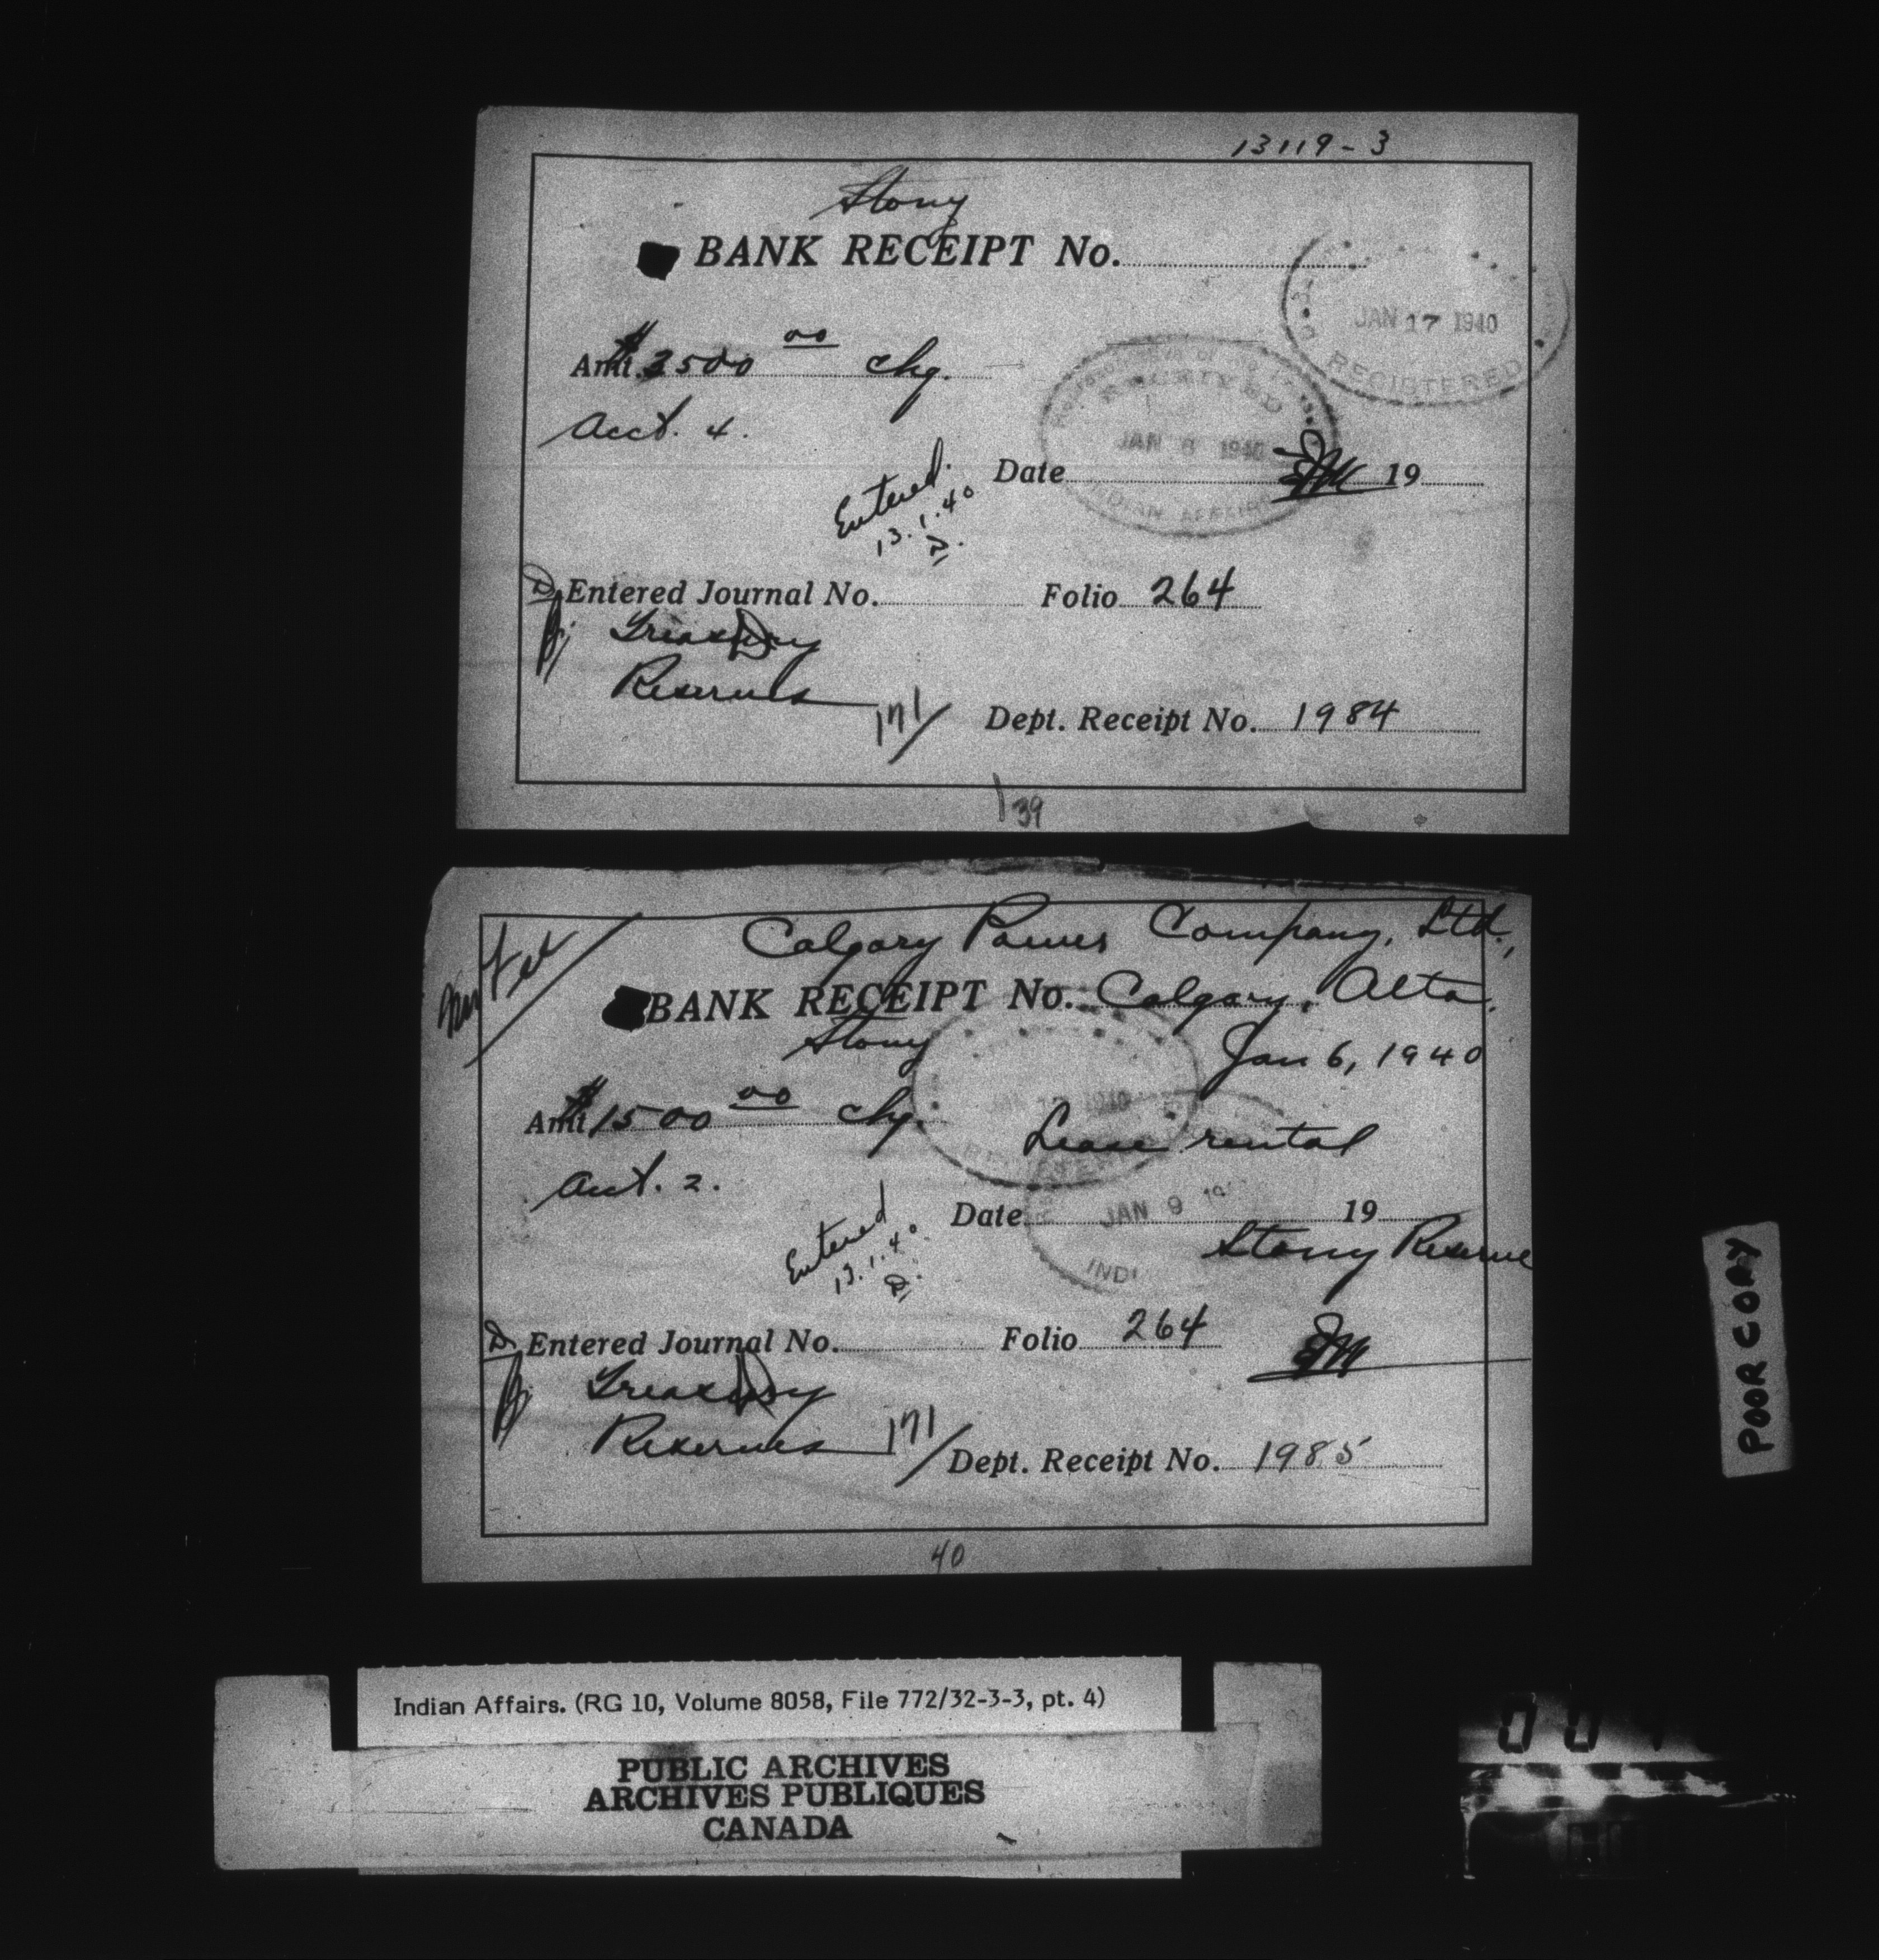 13119-3
Stony
BANK RECEIPT No.
JAN 17 1940
REGISTERED
Amt. $2500 00 chq.
RECEIVED
JAN 8 1940
INDIAN AFFAIRS
Acct. 4.
Date 19
Entered
13.1.40
D.
D. Entered Journal No. Folio 264
Treasury
Reserves
171/
Dept. Receipt No. 1984
39
Calgary Power Company, Ltd.,
BANK RECEIPT No. Calgary, Alta.
Stony
Jan 6, 1940
Amt $1500 00 chq.
Lease rental
Acct. 2.
Date 19
JAN 9
INDI
Stony Reserve
Entered
13.1.40.
D.
D. Entered Journal No. Folio 264
Treasury
Reserves
171/
Dept. Receipt No. 1985
40
POOR COPY
Indian Affairs. (RG 10, Volume 8058, File 772/32-3-3, pt. 4)
PUBLIC ARCHIVES
ARCHIVES PUBLIQUES
CANADA